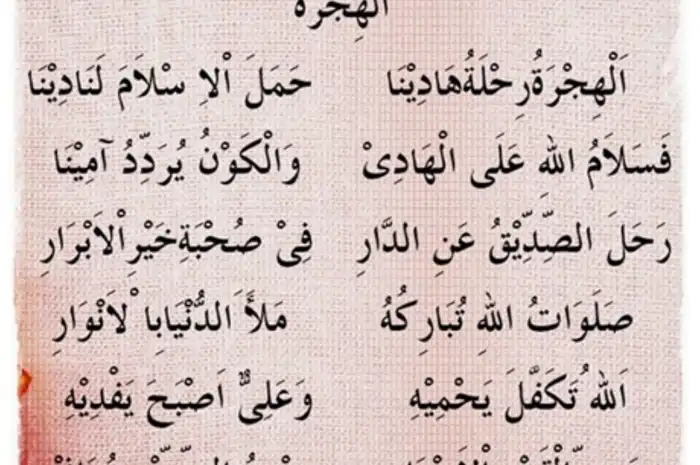 الْهِجْرَةُ
اَلْهِجْرَةُ رِحْلَةُ هَادِيْنَا حَمَلَ اْلاِ سْلاَمَ لَنَادِيْنَا
فَسَلاَمُ اللهِ عَلَى الْهَادِىْ وَالْكَوْنُ يُرَدِّدُ آمِيْنَا
رَحَلَ الصِّدِّيْقُ عَنِ الدَّارِ فِىْ صُحْبَةِ خَيْرِ اْلاَبْرَارِ
صَلَوَاتُ اللهِ تُبَارِكُهُ مَلأَ الدُّنْيَا بِا ْلاَنْوَارِ
اَللهُ تَكَفَّلَ يَحْمِيْهِ وَعَلِىٌّ اَصْبَحَ يَفْدِيْهِ